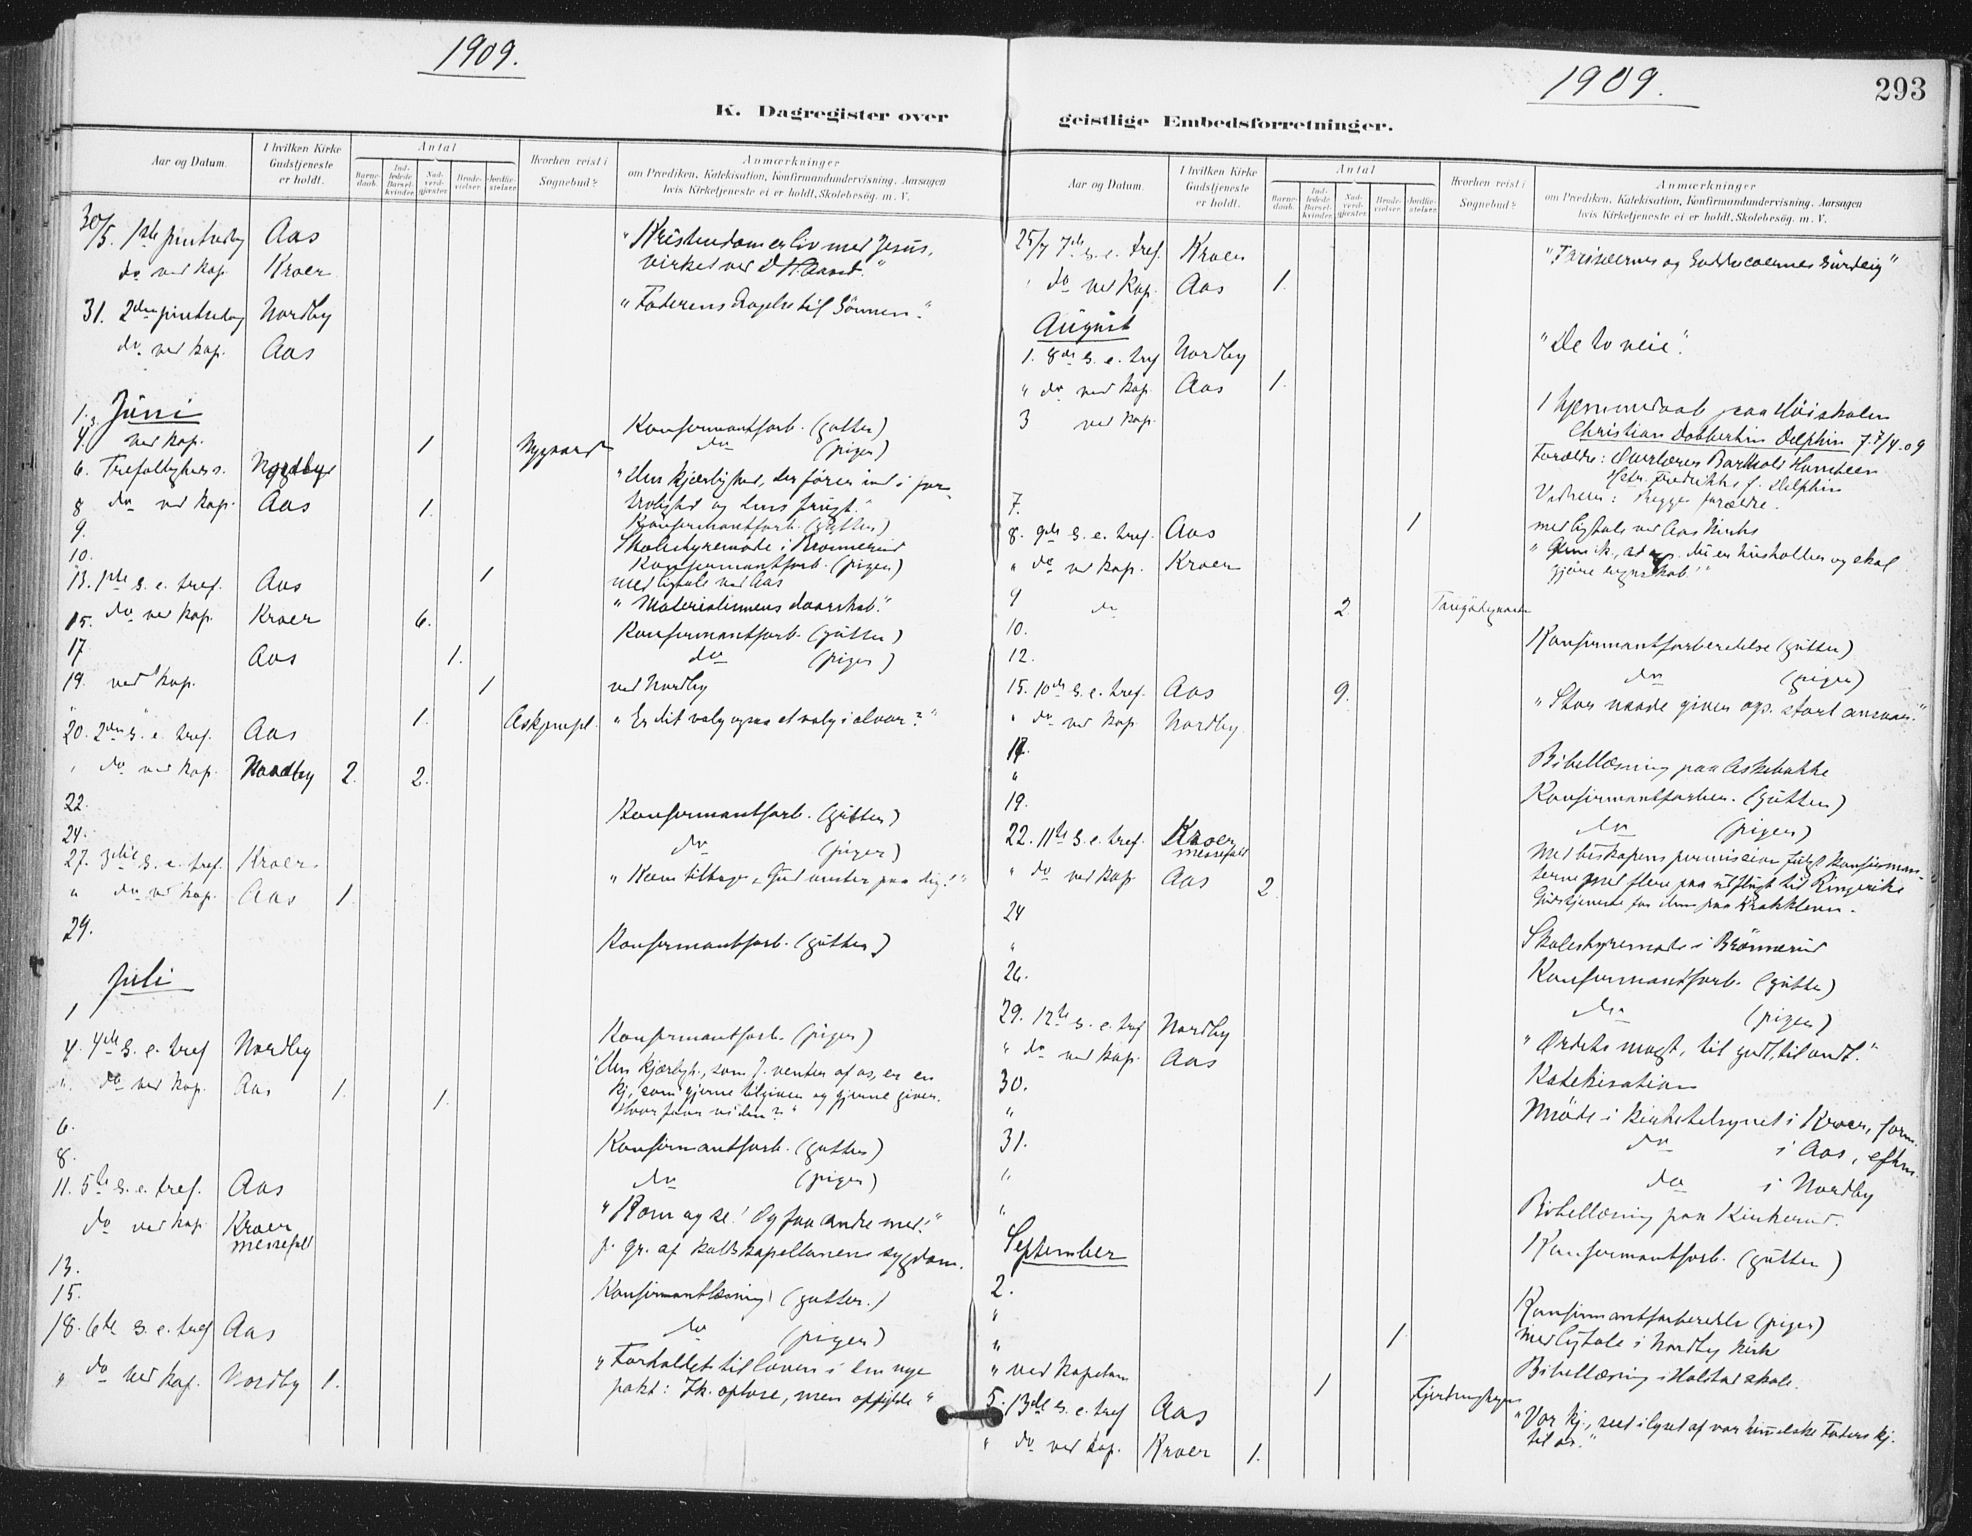 1909.
K. Dagregister over
Aar og Datum.
I hvilken Kirke Gudstjeneste er holdt.
Antal
Barnedaab.
Indledede Barselkvinder.
Nadverdgjester.
Brudevielser.
Jordfæstelser.
Hvorhen reist i Sognebud?
Anmærkninger
om Prædiken, Katekisation, Konfirmandundervisning, Aarsagen
hvis Kirketjeneste ei er holdt, Skolebesøg. m. V.
30/5. 1ste pintsedag Aas "Kristendom er liv med Jesus,
do ved kap. Kroer virket ved D. H. Aand."
31. 2den pintsedag Nordby "Faderens Dragelse til Sønnen."
do ved kap. Aas
Juni
1. Konfirmantforb. (gutter)
3. do (piger)
4. ved kap. 1 Nygaard
6. Trefoldighets s. Nordby "Den kjærlighed, der fører ind i for-
do ved kap. Aas 1. trolighed og dens frugt."
8. Konfirmantforb. (gutter)
9. Skolestyremøde i Brønnerud
10. Konfirmantforb. (piger)
13. 1ste s. e. tref. Aas 1 med ligtale ved Aas
do ved kap. Kroer 6. "Materialismens daarskab."
15. Konfirmantforb. (gutter)
17. Aas 1. do (piger)
19. ved kap. 1 ved Nordby
" 1.
20. 2den s. e. tref. Aas "Er dit valg ogsaa et valg i alvor?"
" do ved kap. Nordby 2. 2.
22. Konfirmantforb. (gutter)
24. do (piger)
27. 3die s. e. tref. Kroer. "Kom tilbage, Gud venter paa dig!"
" do ved kap. Aas 1.
29. Konfirmantforb. (gutter)
Juli
1 Konfirmantforb. (piger)
4. 4de s. e. tref Nordby "Den kjærligh., som J. venter af os, er en
" do ved kap. Aas 1. 1. kj., som gjerne tilgiver og gjerne giver.
Hvor faar vi den?"
6. Konfirmantforb. (gutter)
8. do (piger)
11. 5te s. e. tref. Aas "Kom og se! Og faa andre med!"
do ved kap. Kroer messefald p. gr. af kaldskapellanens sygdom.
13. Konfirmantlæsning (gutter.)
15. do (piger)
18. 6te s. e. tref Aas "Forholdet til loven i den nye
" do ved kap. Nordby 1. pakt: Ik. opløse, men opfylde"
1909.
293
geistlige Embedsforretninger.
Aar og Datum.
I hvilken Kirke Gudstjeneste er holdt.
Antal
Barnedaab.
Indledede Barselkvinder.
Nadverdgjester.
Brudevielser.
Jordfæstelser.
Hvorhen reist i Sognebud?
Anmærkninger
om Prædiken, Katekisation, Konfirmandundervisning, Aarsagen
hvis Kirketjeneste ei er holdt, Skolebesøg. m. V.
25/7 7de s. e. tref. Kroer "Farisæernes og Sadducæernes Surdeig"
" do ved kap. Aas 1.
August
1. 8de s. e. tref Nordby "De to veie".
" do ved kap. Aas 1.
3 ved kap. 1 hjemmedaab paa Høiskolen
Christian Dobbertin Delphin f. 7/4.09
Forældre: Overlærer Barthold Hansteen
Hstr. Fredrikke f. Delphin
Vidner: Begge forældre.
7. 1 med ligtale ved Aas Kirke
8. 9de s. e. tref. Aas
" do ved kap. Kroer du er husholder og skal
gjøre regnskab!"
9 do 2.
10. Konfirmantforberedelse (gutter)
12. do (piger)
15. 10de s. e. tref. Aas 9. "Stor naade giver ogs. stort ansvar."
" do ved kap. Nordby.
17. Bibellæsning paa Askebakke
" Konfirmantforber. (gutter)
19. do (piger)
22. 11te s. e. tref. Kroer messefald Med biskopens permission fulgt konfirman-
" do ved kap. Aas 2 terne med flere paa udflugt til Ringerike
Gudstjeneste for dem paa Krokkleven.
24 Skolestyremøde i Brønnerud
" Konfirmantforb. (gutter)
26. do (piger)
29. 12te s. e. tref Nordby "Ordets magt, til godt, til ondt."
" do ved kap. Aas Katekisation
30. Møde i kirketilsynet i Kroer, form.
" do i Aas, efterm.
31. do i Nordby
" Bibellæsning paa Kirkerud.
" Konfirmantforb. (gutter)
September
2. Konfirmantforberedelse (piger)
" 1 med ligtale i Nordby kirke
" Bibellæsning i Holstad skole.
" ved kapellan 1
5. 13de s. e. tref Aas "Vor kj., set i lyset af vor himmelske Faders kj.
" do ved kap. Kroer 1. til os."